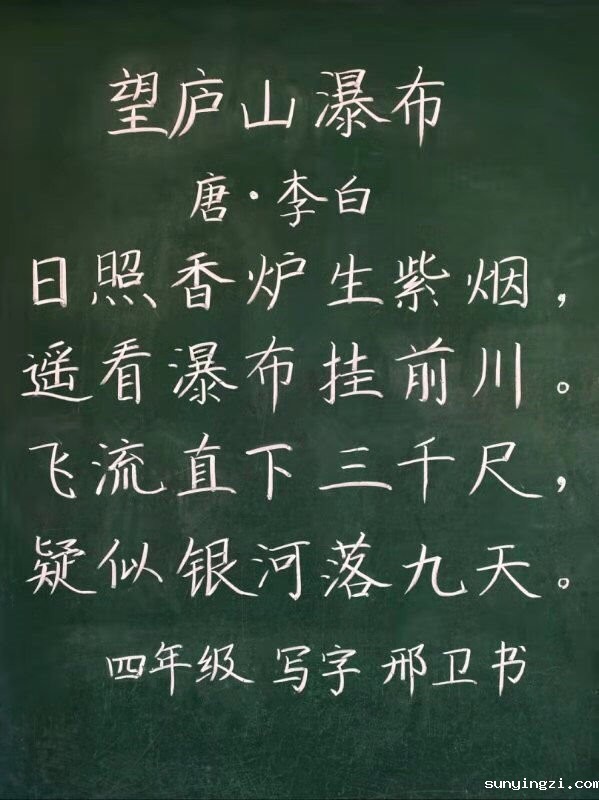 望庐山瀑布
唐·李白
日照香炉生紫烟，
遥看瀑布挂前川。
飞流直下三千尺，
疑似银河落九天。
四年级 写字 邢卫书
sunyingzi.com